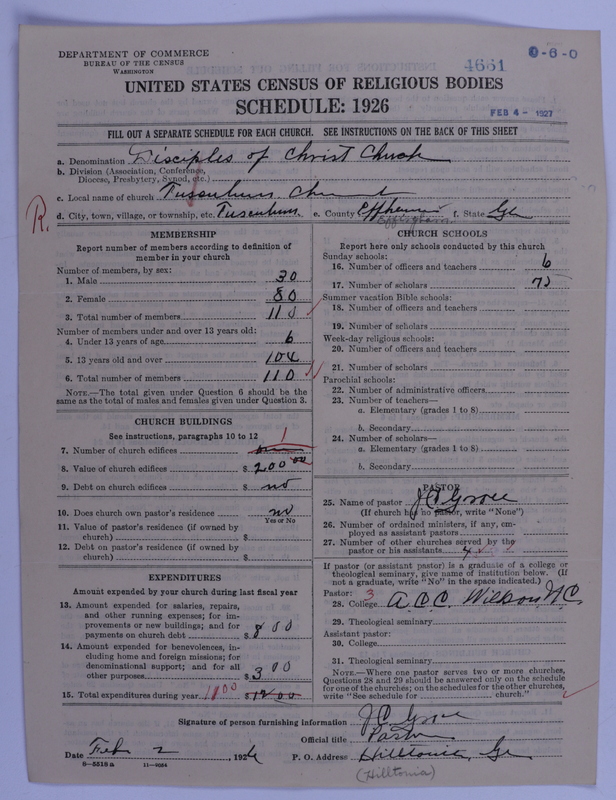 DEPARTMENT OF COMMERCE
BUREAU OF THE CENSUS
WASHINGTON
4661
0-6-0
UNITED STATES CENSUS OF RELIGIOUS BODIES
SCHEDULE: 1926
FEB 4 - 1927
FILL OUT A SEPARATE SCHEDULE FOR EACH CHURCH. SEE INSTRUCTIONS ON THE BACK OF THIS SHEET
a. Denomination Disciples of Christ Church
b. Division (Association, Conference,
Diocese, Presbytery, Synod, etc.)
c. Local name of church Tusculum
R.
d. City, town, village, or township, etc. Tusculum e. County Effingham f. State Ga
MEMBERSHIP
Report number of members according to definition of
member in your church
Number of members, by sex:
1. Male 30
2. Female 80
3. Total number of members 110
Number of members under and over 13 years old:
4. Under 13 years of age 6
5. 13 years old and over 104
6. Total number of members 110
NOTE.—The total given under Question 6 should be the
same as the total of males and females given under Question 3.
CHURCH BUILDINGS
See instructions, paragraphs 10 to 12
7. Number of church edifices 1
8. Value of church edifices $ 20000
9. Debt on church edifices $ no
10. Does church own pastor's residence no
Yes or No
11. Value of pastor's residence (if owned by
church) $
12. Debt on pastor's residence (if owned by
church) $
EXPENDITURES
Amount expended by your church during last fiscal year
13. Amount expended for salaries, repairs,
and other running expenses; for im-
provements or new buildings; and for
payments on church debt $ 800
14. Amount expended for benevolences, in-
cluding home and foreign missions; for
denominational support; and for all
other purposes $ 300
15. Total expenditures during year 1100 $ 1200
CHURCH SCHOOLS
Report here only schools conducted by this church
Sunday schools:
16. Number of officers and teachers 6
17. Number of scholars 75
Summer vacation Bible schools:
18. Number of officers and teachers
19. Number of scholars
Week-day religious schools:
20. Number of officers and teachers
21. Number of scholars
Parochial schools:
22. Number of administrative officers
23. Number of teachers—
a. Elementary (grades 1 to 8)
b. Secondary
24. Number of scholars—
a. Elementary (grades 1 to 8)
b. Secondary
PASTOR
25. Name of pastor
(If church has no pastor, write "None")
26. Number of ordained ministers, if any, em-
ployed as assistant pastors
27. Number of other churches served by the
pastor or his assistants 4
If pastor (or assistant pastor) is a graduate of a college or
theological seminary, give name of institution below. (If
not a graduate, write "No" in the space indicated.)
Pastor: 3
28. College A.C.C. Wilson, N C
29. Theological seminary
Assistant pastor:
30. College
31. Theological seminary
NOTE.—Where one pastor serves two or more churches,
Questions 28 and 29 should be answered only on the schedule
for one of the churches; on the schedules for the other churches,
write "See schedule for church."
Signature of person furnishing information
Official title Pastor
Date Feb 2, 192 P. O. Address Hilltonia, Ga
8-5518a 11-9084
(Hilltonia)